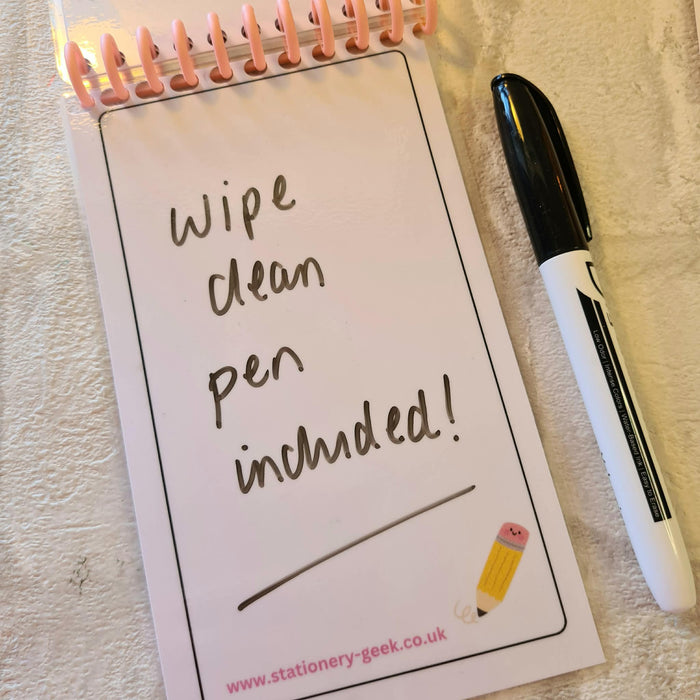 wipe
clean
pen
included!
www.stationery-geek.co.uk
Low Odor | Intense Colors | Water-Based Ink | Easy to Erase